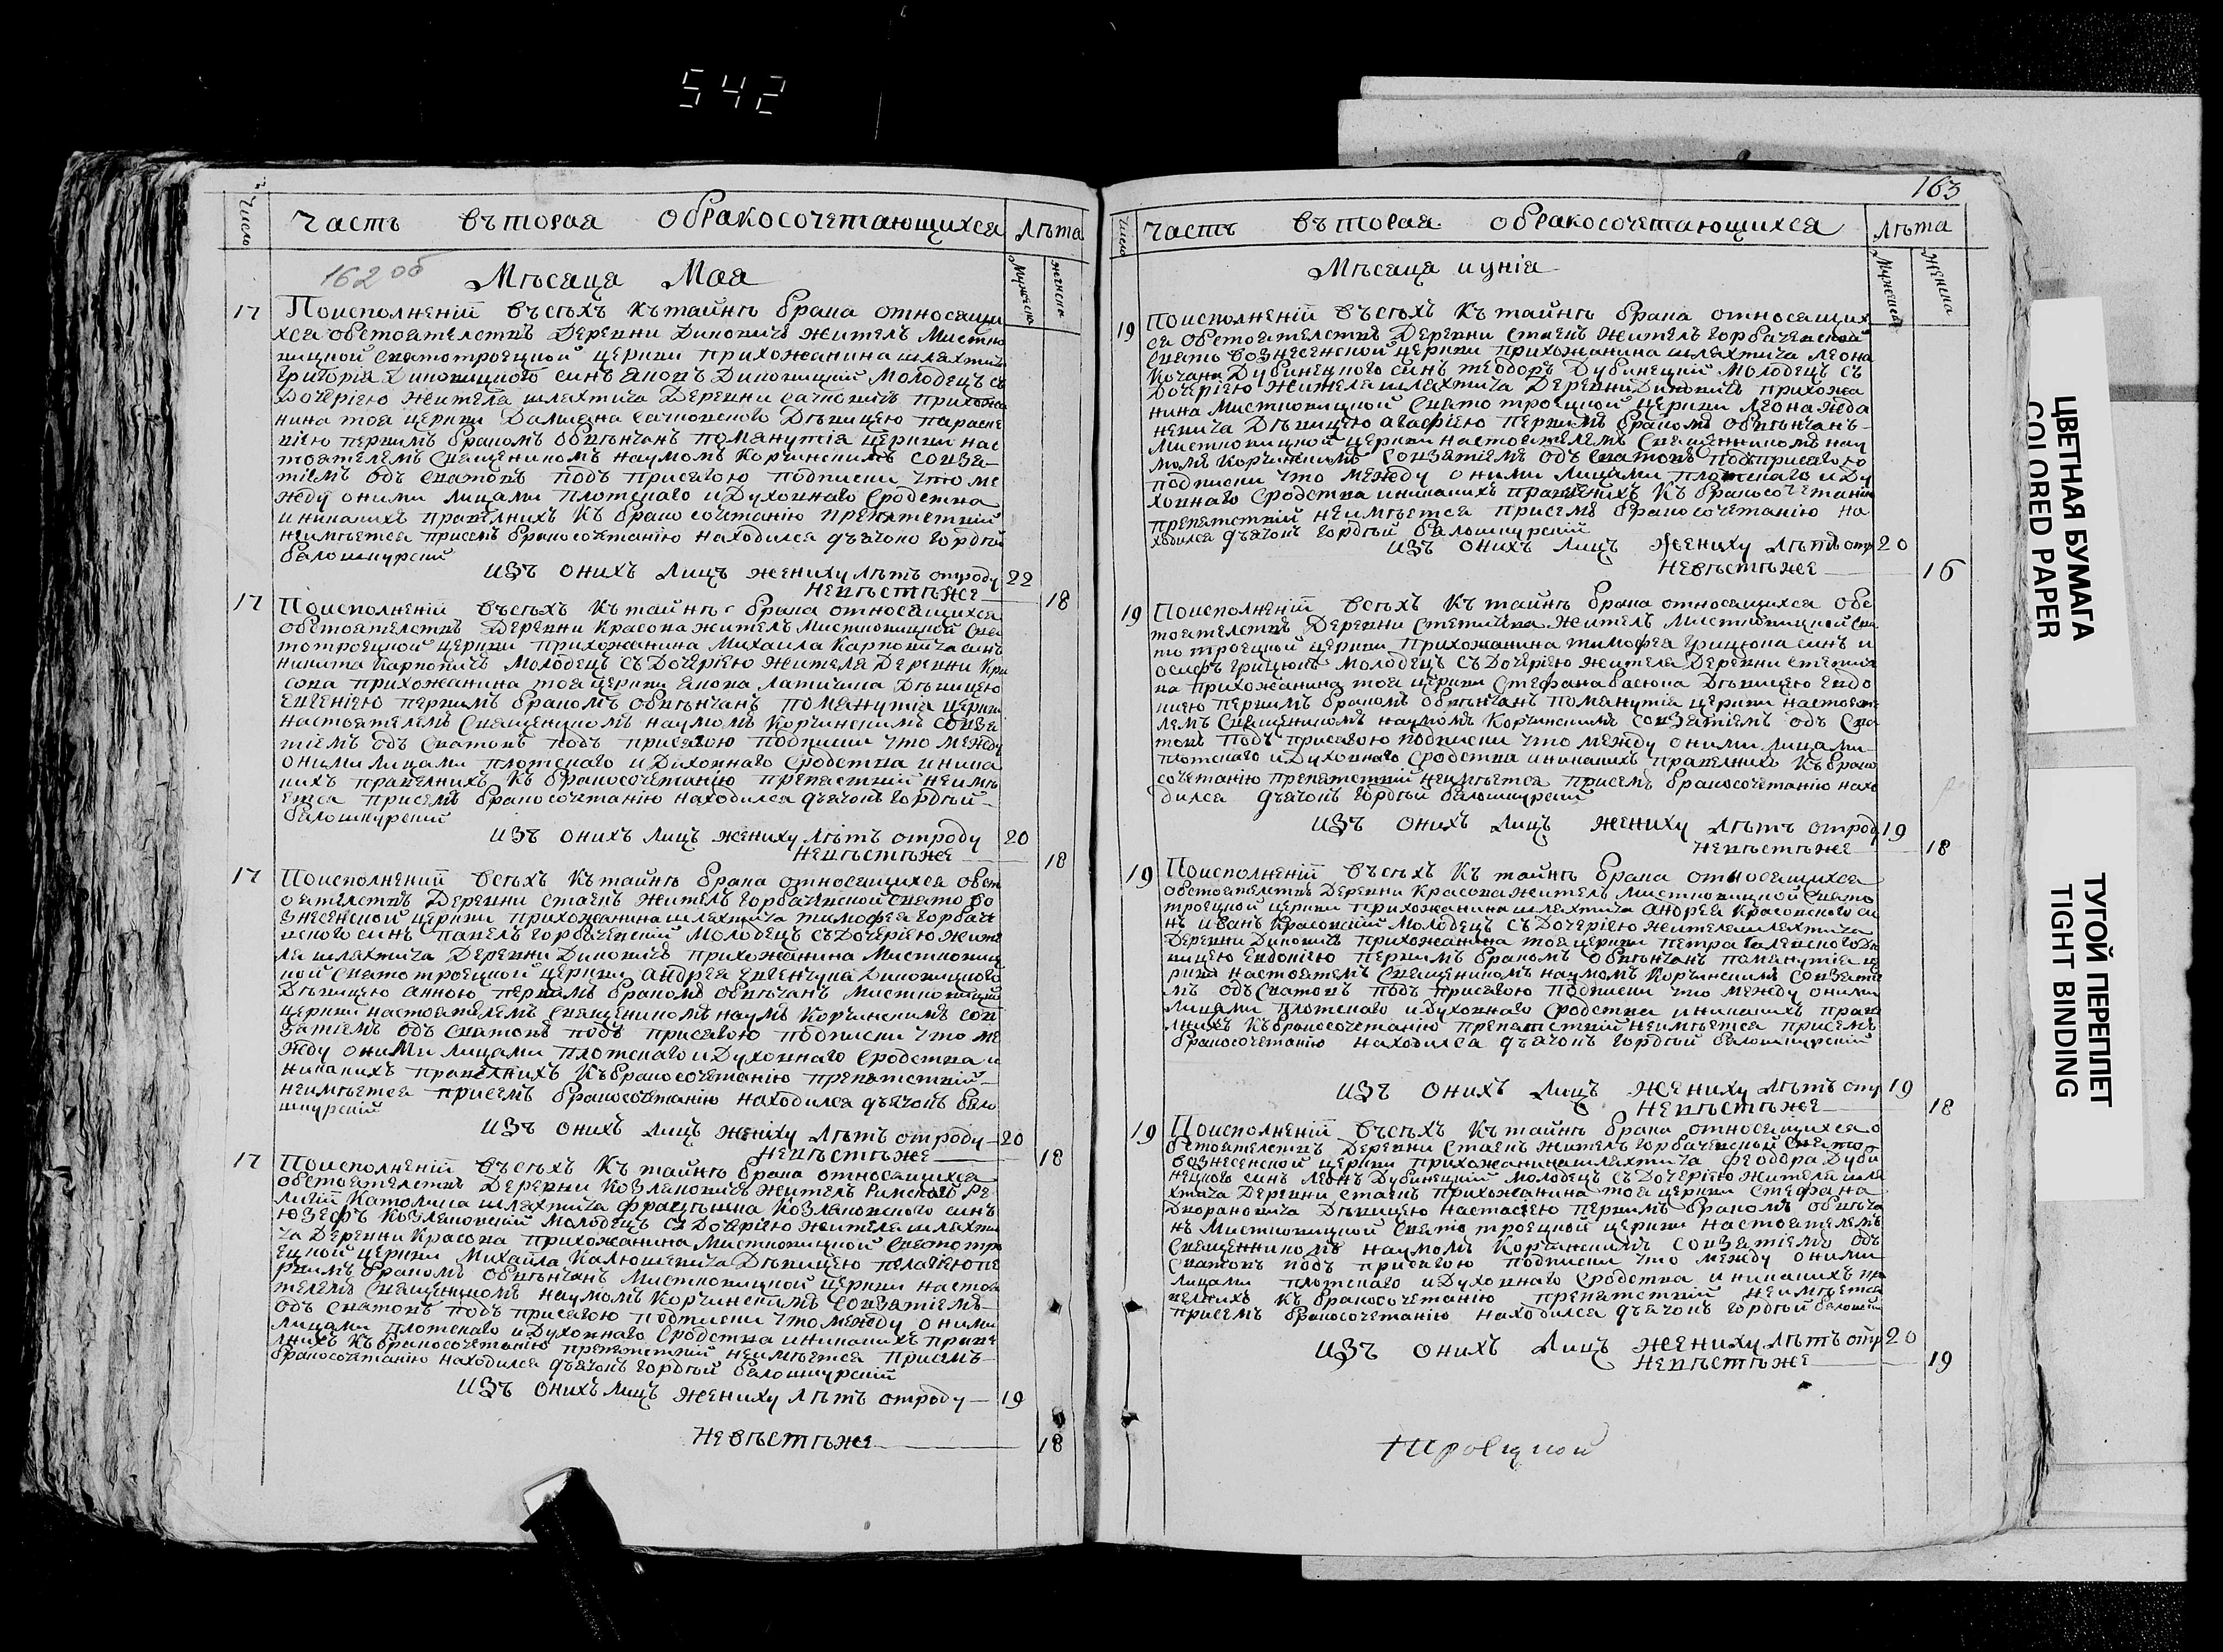 542
Число
Часть въторая обракосочетающихся
Лѣта
162 об
Мѣсяца Мая
Мужеска
женска
17 Поисполненій въсѣхъ Къ тайнѣ брака относящи
хся обстоятелствъ Деревни Диковичъ жителъ Мистко
вицкой святотроецкой церкви прихожанина шляхтича
Григорія Диковицкого синъ Яковъ Диковицкій Молодецъ съ
Дочерїею жителя шляхтича Деревни Сачковичъ прихожа
нина тоя церкви Дамияна Сачковского Дѣвицею параске
вїею первимъ бракомъ обвѣнчанъ помянутїя церкви нас
тоятелемъ Священикомъ наумомъ Корчинскимъ совзя-
тїемъ одъ сватовъ подъ присягою подписки что ме
жду оними лицами плотскаго и Духовнаго сродства
и никакихъ правилнихъ Къ бракосочетанїю препятствій
неимѣется присемъ бракосочетанїю находился дъячокъ гордѣй
балошкурскій
изъ онихъ лицъ жениху лѣтъ отроду 22
Невѣстѣже 18
17 Поисполненій въсѣхъ Къ тайнѣ брака относящихся
обстоятелствъ Деревни Красова жителъ Мистковицкой свя
тотроецкой церкви прихожанина Михаила Карповича синъ
никита Карповичъ Молодецъ съ Дочерїею жителя Деревни Кра
сова прихожанина тоя церкви Якова Латичина Дѣвицею
Евгенїею первимъ бракомъ обвѣнчанъ помянутїя церкви
настоятелемъ Священикомъ наумомъ Корчинскимъ совзя
тїемъ одъ сватовъ подъ присягою подписки что между
оними лицами плотскаго и Духовнаго сродства и ника
кихъ правилнихъ Къ бракосочетанїю препятствій неимѣ
ется присемъ бракосочетанїю находился дъячокъ гордѣй-
балошкурскій
изъ онихъ лицъ жениху лѣтъ отроду 20
Невѣстѣже 18
17 Поисполненій всѣхъ Къ тайнѣ брака относящихся обст
оятелствъ Деревни Ставъ жителъ Горбачевской свято во
знесенской церкви прихожанина шляхтича тимофея горбаче
вского синъ павелъ горбачевскій Молодецъ съ Дочерїею жите
ля шляхтича Деревни Диковичъ прихожанина Мистковиц
кой святотроецкой церкви андрея Евенчука Диковицкого
Дѣвицею анною первимъ бракомъ обвѣнчанъ Мистковицкой
церкви настоятелемъ Священикомъ наумъ Корчинскимъ сов
зятїемъ одъ сватовъ подъ присягою подписки что ме
жду оними лицами плотскаго и Духовнаго сродства и
никакихъ правилнихъ Къ бракосочетанїю препятствій-
неимѣется присемъ бракосочетанїю находился дъячокъ бало
шкурскій
изъ онихъ лицъ жениху лѣтъ отроду 20
Невѣстѣже 18
17 Поисполненій въсѣхъ Къ тайнѣ брака относящихся
обстоятелствъ Деревни Козляковичъ жителъ Римской Ре
лигїй Католика шляхтича францѣшка Козляковского синъ
Юзефъ Козляковскій Молодецъ съ Дочерїею жителя шляхти
ча Деревни Красова прихожанина Мистковицкой святотро
ецкой церкви Михаила Калюшевича Дѣвицею пелагїею пе
рвимъ бракомъ обвѣнчанъ Мистковицкой церкви настоя
телемъ Священикомъ наумомъ Корчинскимъ совзятїемъ-
одъ сватовъ подъ присягою подписки что между оними
лицами плотскаго и Духовнаго сродства и никакихъ прави
лнихъ Къ бракосочетанїю препятствій неимѣется присемъ-
бракосочетанїю находился дъячокъ гордѣй балошкурскій
изъ онихъ лицъ жениху лѣтъ отроду 19
Невѣстѣже 18
163
Число
Часть въторая обракосочетающихся
Лѣта
Мѣсяца иунїя
Мужеска
Женска
19 Поисполненій въсѣхъ Къ тайнѣ брака относящих
ся обстоятелствъ Деревни Ставъ жителъ Горбачевской
свято вознесенской церкви прихожанина шляхтича леона
Кочана Дубинецкого синъ теодоръ Дубинецкій Молодецъ съ
Дочерїею жителя шляхтича Деревни Диковичъ прихожа
нина Мистковицкой святотроецкой церкви леона жда
невича Дѣвицею агафїею первимъ бракомъ обвѣнчанъ-
Мистковицкой церкви настоятелемъ Священникомъ нау
момъ Корчинскимъ совзятїемъ одъ сватовъ подъ присягою
подписки что между оними лицами плотскаго и Ду
ховнаго сродства и никакихъ правилнихъ Къ бракосочетанїю
препятствій неимѣется присемъ бракосочетанїю на
ходился дъячокъ гордѣй балошкурскій
изъ онихъ лицъ жениху лѣтъ отр 20
Невѣстѣже 16
19 Поисполненій всѣхъ Къ тайнѣ брака относящихся обс
тоятелствъ Деревни Стетичва жителъ Мистковицкой свя
тотроецкой церкви прихожанина тимофея Грицюка синъ и
осифъ Грицюкъ Молодецъ съ Дочерїею жителя Деревни Стетич
ва прихожанина тоя церкви Стефана басюка Дѣвицею Евдо
кїею первимъ бракомъ обвѣнчанъ помянутїя церкви настояте
лемъ Священикомъ наумомъ Корчинскимъ совзятїемъ одъ сва
товъ подъ присягою подписки что между оними лицами-
плотскаго и Духовнаго сродства и никакихъ правилнихъ Къ брако
сочетанїю препятствій неимѣется присемъ бракосочетанїю нахо
дился дъячокъ гордѣй балошкурскій
изъ онихъ лицъ жениху лѣтъ отрод 19
Невѣстѣже 18
19 Поисполненій въсѣхъ Къ тайнѣ брака относящихся
обстоятелствъ Деревни Красова жителъ Мистковицкой свято
троецкой церкви прихожанина шляхтича андрея Красовского си
нъ иванъ Красовскій Молодецъ съ Дочерїею жителя шляхтича
Деревни Диковичъ прихожанина тоя церкви петра Галенского Дѣ
вицею Евдокїею первимъ бракомъ обвѣнчанъ помянутїя це
ркви настоятемъ Священикомъ наумомъ Корчинскимъ совзятїе
мъ одъ сватовъ подъ присягою подписки что между оними
лицами плотскаго и Духовнаго сродства и никакихъ прави
лнихъ Къ бракосочетанїю препятствій неимѣется присемъ
бракосочетанїю находился дъячокъ гордѣй балошкурскій
изъ онихъ лицъ жениху лѣтъ отр 19
Невѣстѣже 18
19 Поисполненій въсѣхъ Къ тайнѣ брака относящихся о
бстоятелствъ Деревни Ставъ жителъ Горбачевской свято-
вознесенской церкви прихожанина шляхтича феодора Дуби
нецкого синъ леонъ Дубинецкій Молодецъ съ Дочерїею жителя шля
хтича Деревни Ставъ прихожанина тоя церкви Стефана
Дворановича Дѣвицею настасїею первимъ бракомъ обвѣнча
нъ Мистковицкой святотроецкой церкви настоятелемъ
Священникомъ наумомъ Корчинскимъ совзятїемъ одъ
сватовъ подъ присягою подписки что между оними
лицами плотскаго и Духовнаго сродства и никакихъ пра
вилнихъ Къ бракосочетанїю препятствій неимѣется
присемъ бракосочетанїю находился дъячокъ гордѣй балошк
изъ онихъ лицъ жениху лѣтъ отр 20
Невѣстѣже 19
Троецкой
ЦВЕТНАЯ БУМАГА
COLORED PAPER
ТУГОЙ ПЕРЕПЛЕТ
TIGHT BINDING